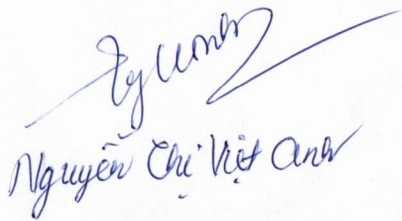 Nguyễn Thị Việt Anh